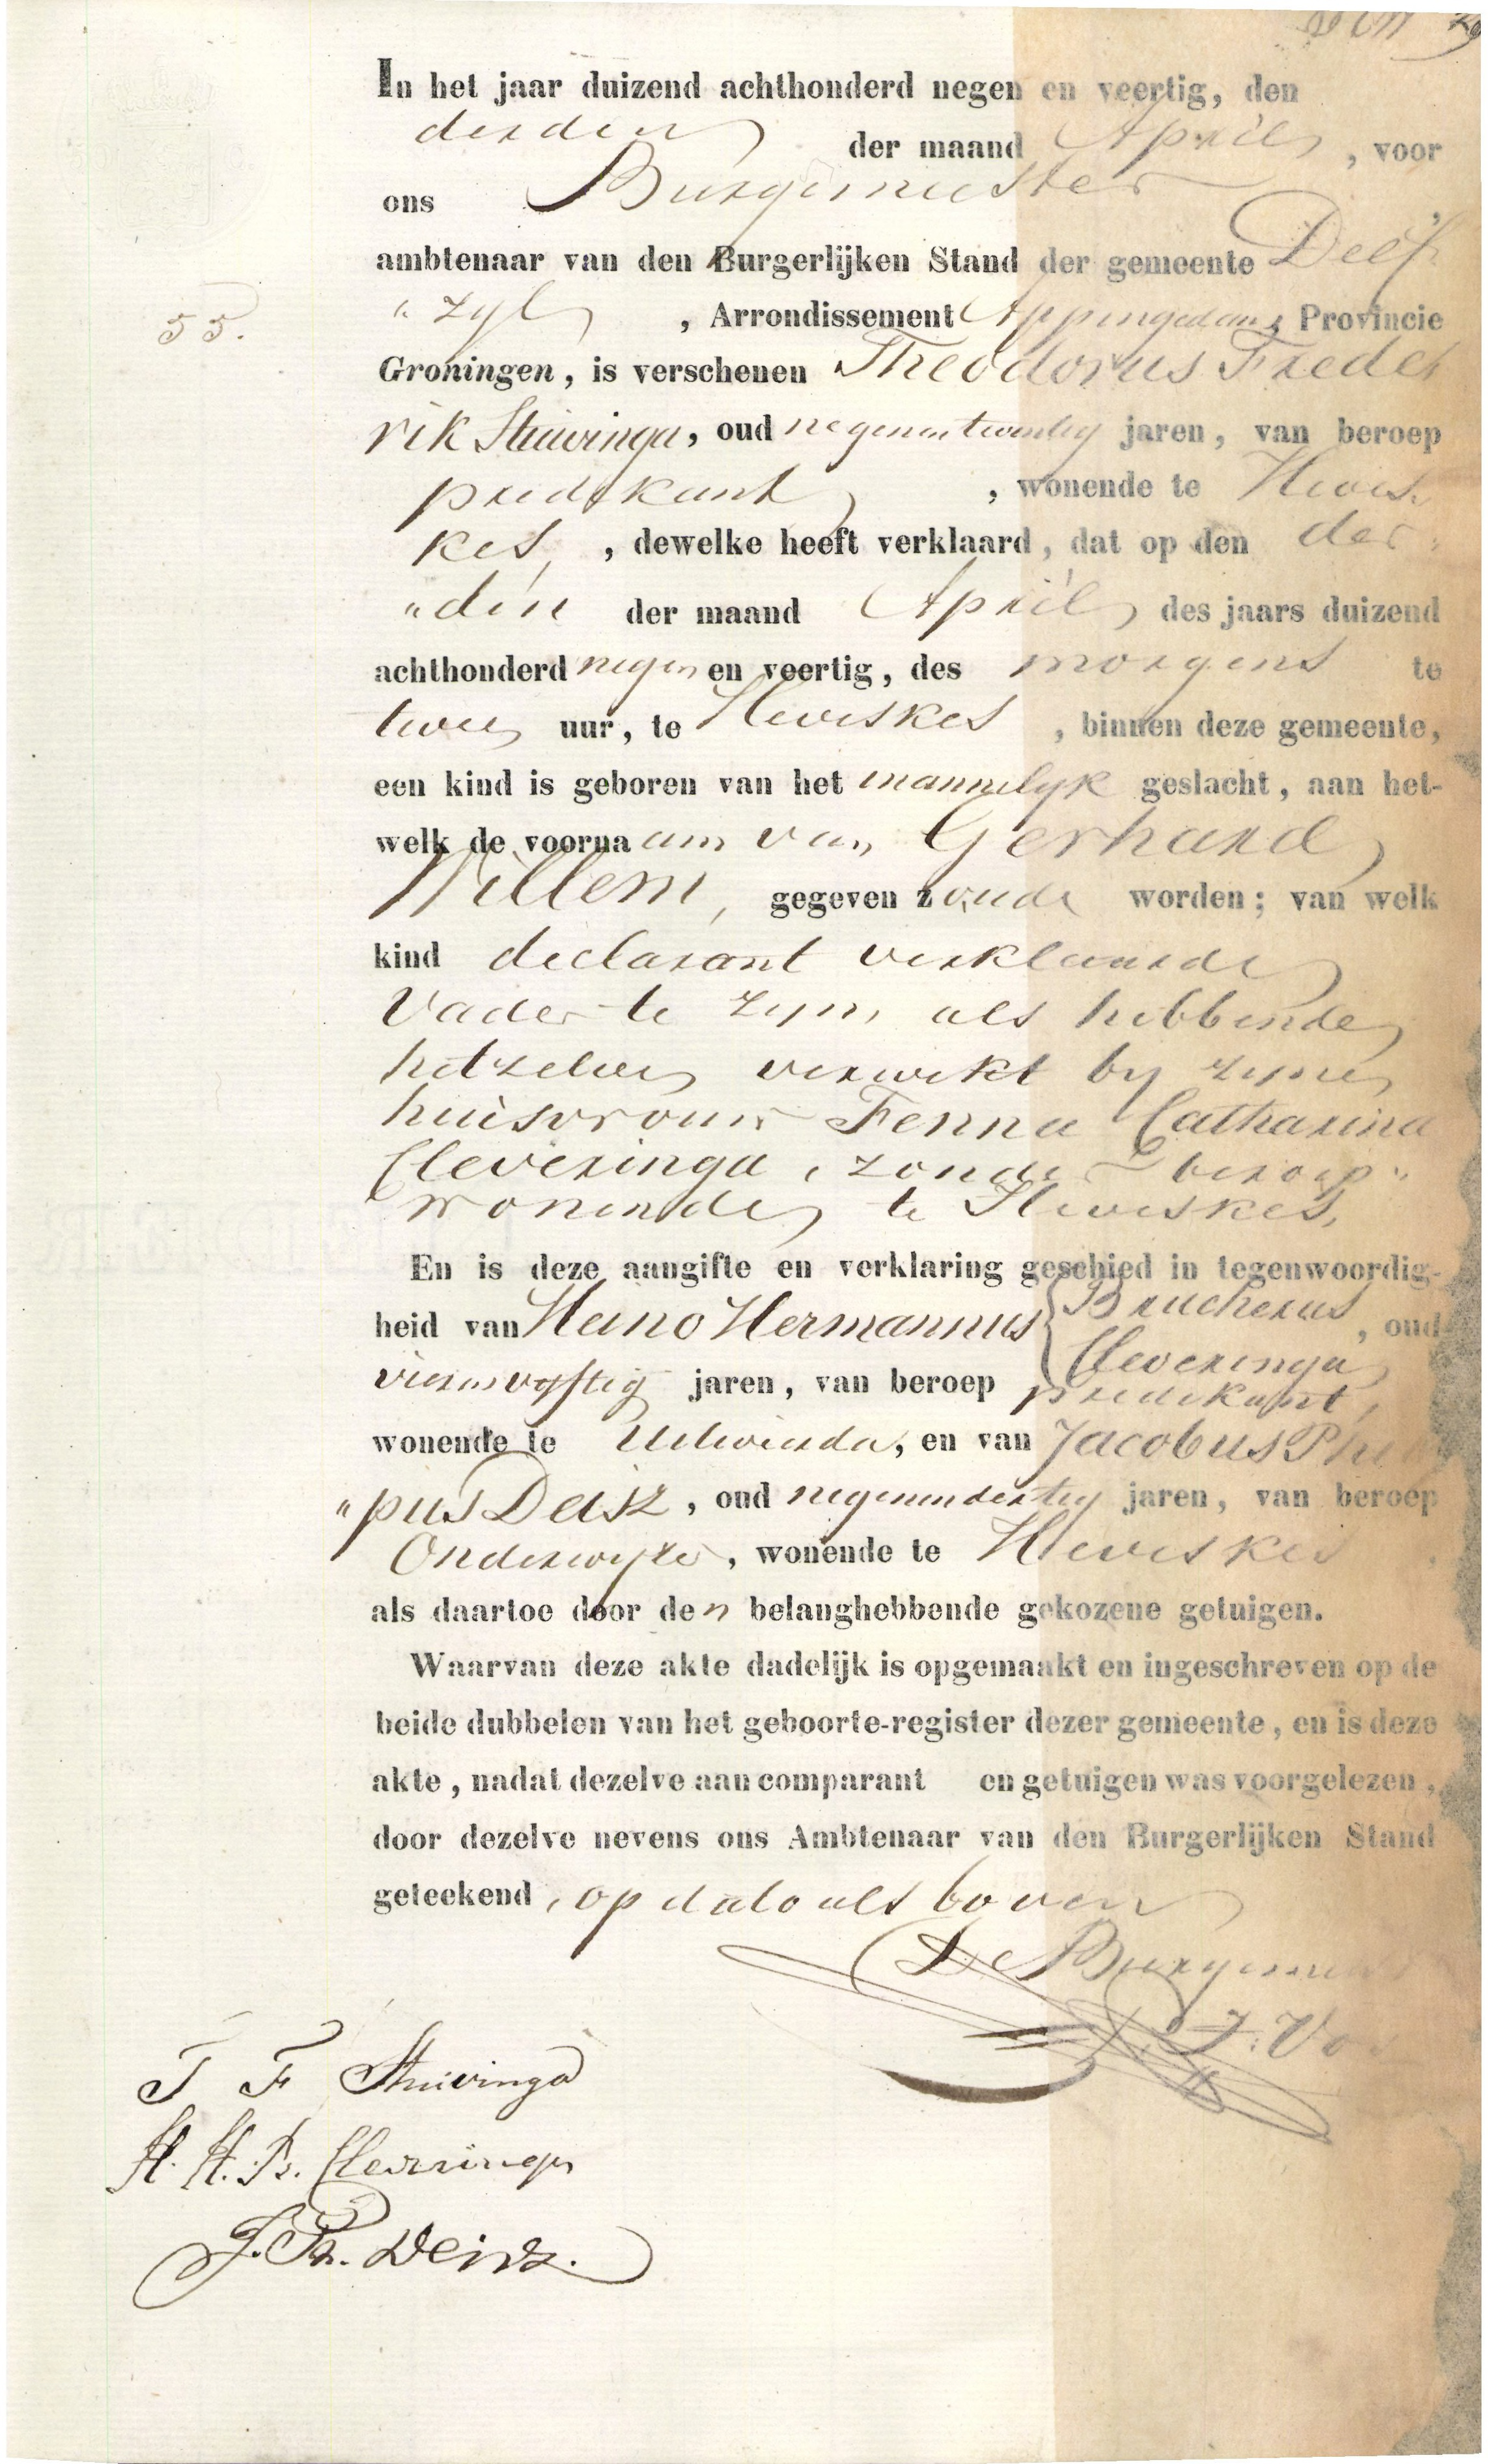 In het jaar duizend achthonderd negen en veertig, den
derden der maand April, voor
ons Burgemeester,
ambtenaar van den Burgerlijken Stand der gemeente Delf
"zyl, Arrondissement Appingedam, Provincie
Groningen, is verschenen Theodorus Frede
rik Stuivinga, oud negenentwintig jaren, van beroep
predikant, wonende te Heves
kes, dewelke heeft verklaard, dat op den der
"den der maand April des jaars duizend
achthonderd negen en veertig, des morgens te
twee uur, te Heveskes, binnen deze gemeente,
een kind is geboren van het mannelyk geslacht, aan het-
welk de voornaam van Gerhard
Willem, gegeven zoude worden; van welk
kind declarant verklaarde
Vader te zyn, als hebbende
hetzelve verwekt by zyne
huisvrouw Fenna Catharina
Cleveringa, zonder beroep
wonende te Heveskes,
En is deze aangifte en verklaring geschied in tegenwoordig-
heid van Heino Hermannus { Brucherus
Cleveringa, oud
vierenvyftig jaren, van beroep predikant,
wonende te Uitwierda, en van Jacobus Phi
"pus Deisz, oud negenendertig jaren, van beroep
Onderwyzer, wonende te Heveskes
als daartoe door den belanghebbende gekozene getuigen.
Waarvan deze akte dadelijk is opgemaakt en ingeschreven op de
beide dubbelen van het geboorte-register dezer gemeente, en is deze
akte, nadat dezelve aan comparant en getuigen was voorgelezen,
door dezelve nevens ons Ambtenaar van den Burgerlijken Stand
geteekend, op dato als boven
De Burgemees
55.
T F Stuivinga
H. H. Br. Cleveringa
J. Ph. Deisz.